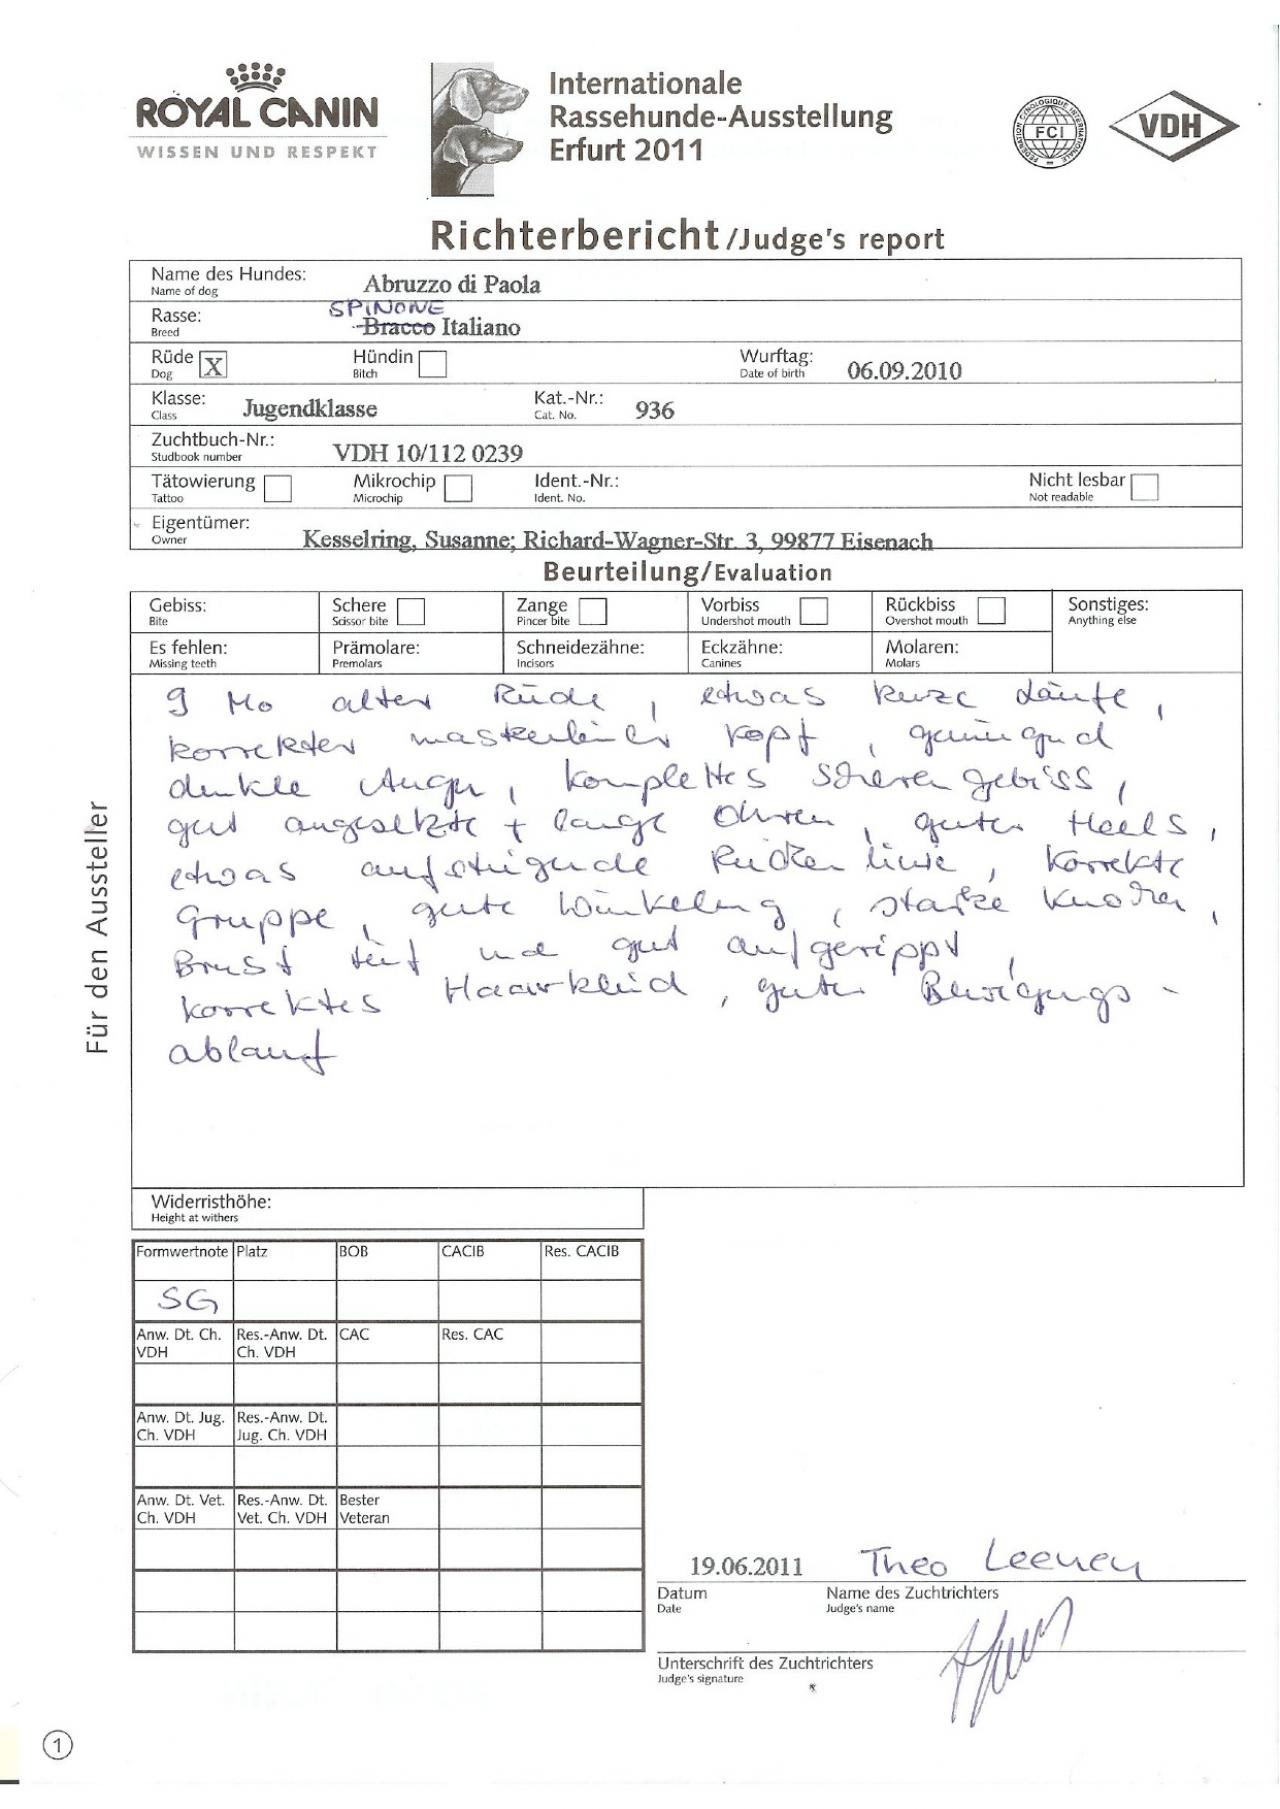 ROYAL CANIN
WISSEN UND RESPEKT
Internationale
Rassehunde-Ausstellung
Erfurt 2011
FEDERATION CYNOLOGIQUE INTERNATIONALE
FCI
VDH
Richterbericht/Judge's report
Name des Hundes:
Name of dog
Abruzzo di Paola
Rasse:
Breed
SPINONE
Bracco Italiano
Rüde X
Dog
Hündin
Bitch
Wurftag:
Date of birth
06.09.2010
Klasse:
Class
Jugendklasse
Kat.-Nr.:
Cat. No.
936
Zuchtbuch-Nr.:
Studbook number
VDH 10/112 0239
Tätowierung
Tattoo
Mikrochip
Microchip
Ident.-Nr.:
Ident. No.
Nicht lesbar
Not readable
Eigentümer:
Owner
Kesselring, Susanne; Richard-Wagner-Str. 3, 99877 Eisenach
Beurteilung/Evaluation
Gebiss:
Bite
Schere
Scissor bite
Zange
Pincer bite
Vorbiss
Undershot mouth
Rückbiss
Overshot mouth
Sonstiges:
Anything else
Es fehlen:
Missing teeth
Prämolare:
Premolars
Schneidezähne:
Incisors
Eckzähne:
Canines
Molaren:
Molars
9 Mo alter Rüde, etwas kurze Läufe,
korrekter maskuliner Kopf, genügend
dunkle Augen, komplettes Scherengebiss,
gut angesetzte + lange Ohren, guter Hals,
etwas aufsteigende Rückenlinie, korrekte
Gruppe, gute Winkelung, starke Knochen,
Brust tief und gut aufgerippt,
korrektes Haarkleid, guter Bewegungs-
ablauf
Für den Aussteller
Widerristhöhe:
Height at withers
Formwertnote Platz BOB CACIB Res. CACIB
SG
Anw. Dt. Ch. VDH
Res.-Anw. Dt. Ch. VDH
CAC
Res. CAC
Anw. Dt. Jug. Ch. VDH
Res.-Anw. Dt. Jug. Ch. VDH
Anw. Dt. Vet. Ch. VDH
Res.-Anw. Dt. Vet. Ch. VDH
Bester Veteran
19.06.2011 Theo Leenen
Datum
Date
Name des Zuchtrichters
Judge's name
Unterschrift des Zuchtrichters
Judge's signature
1